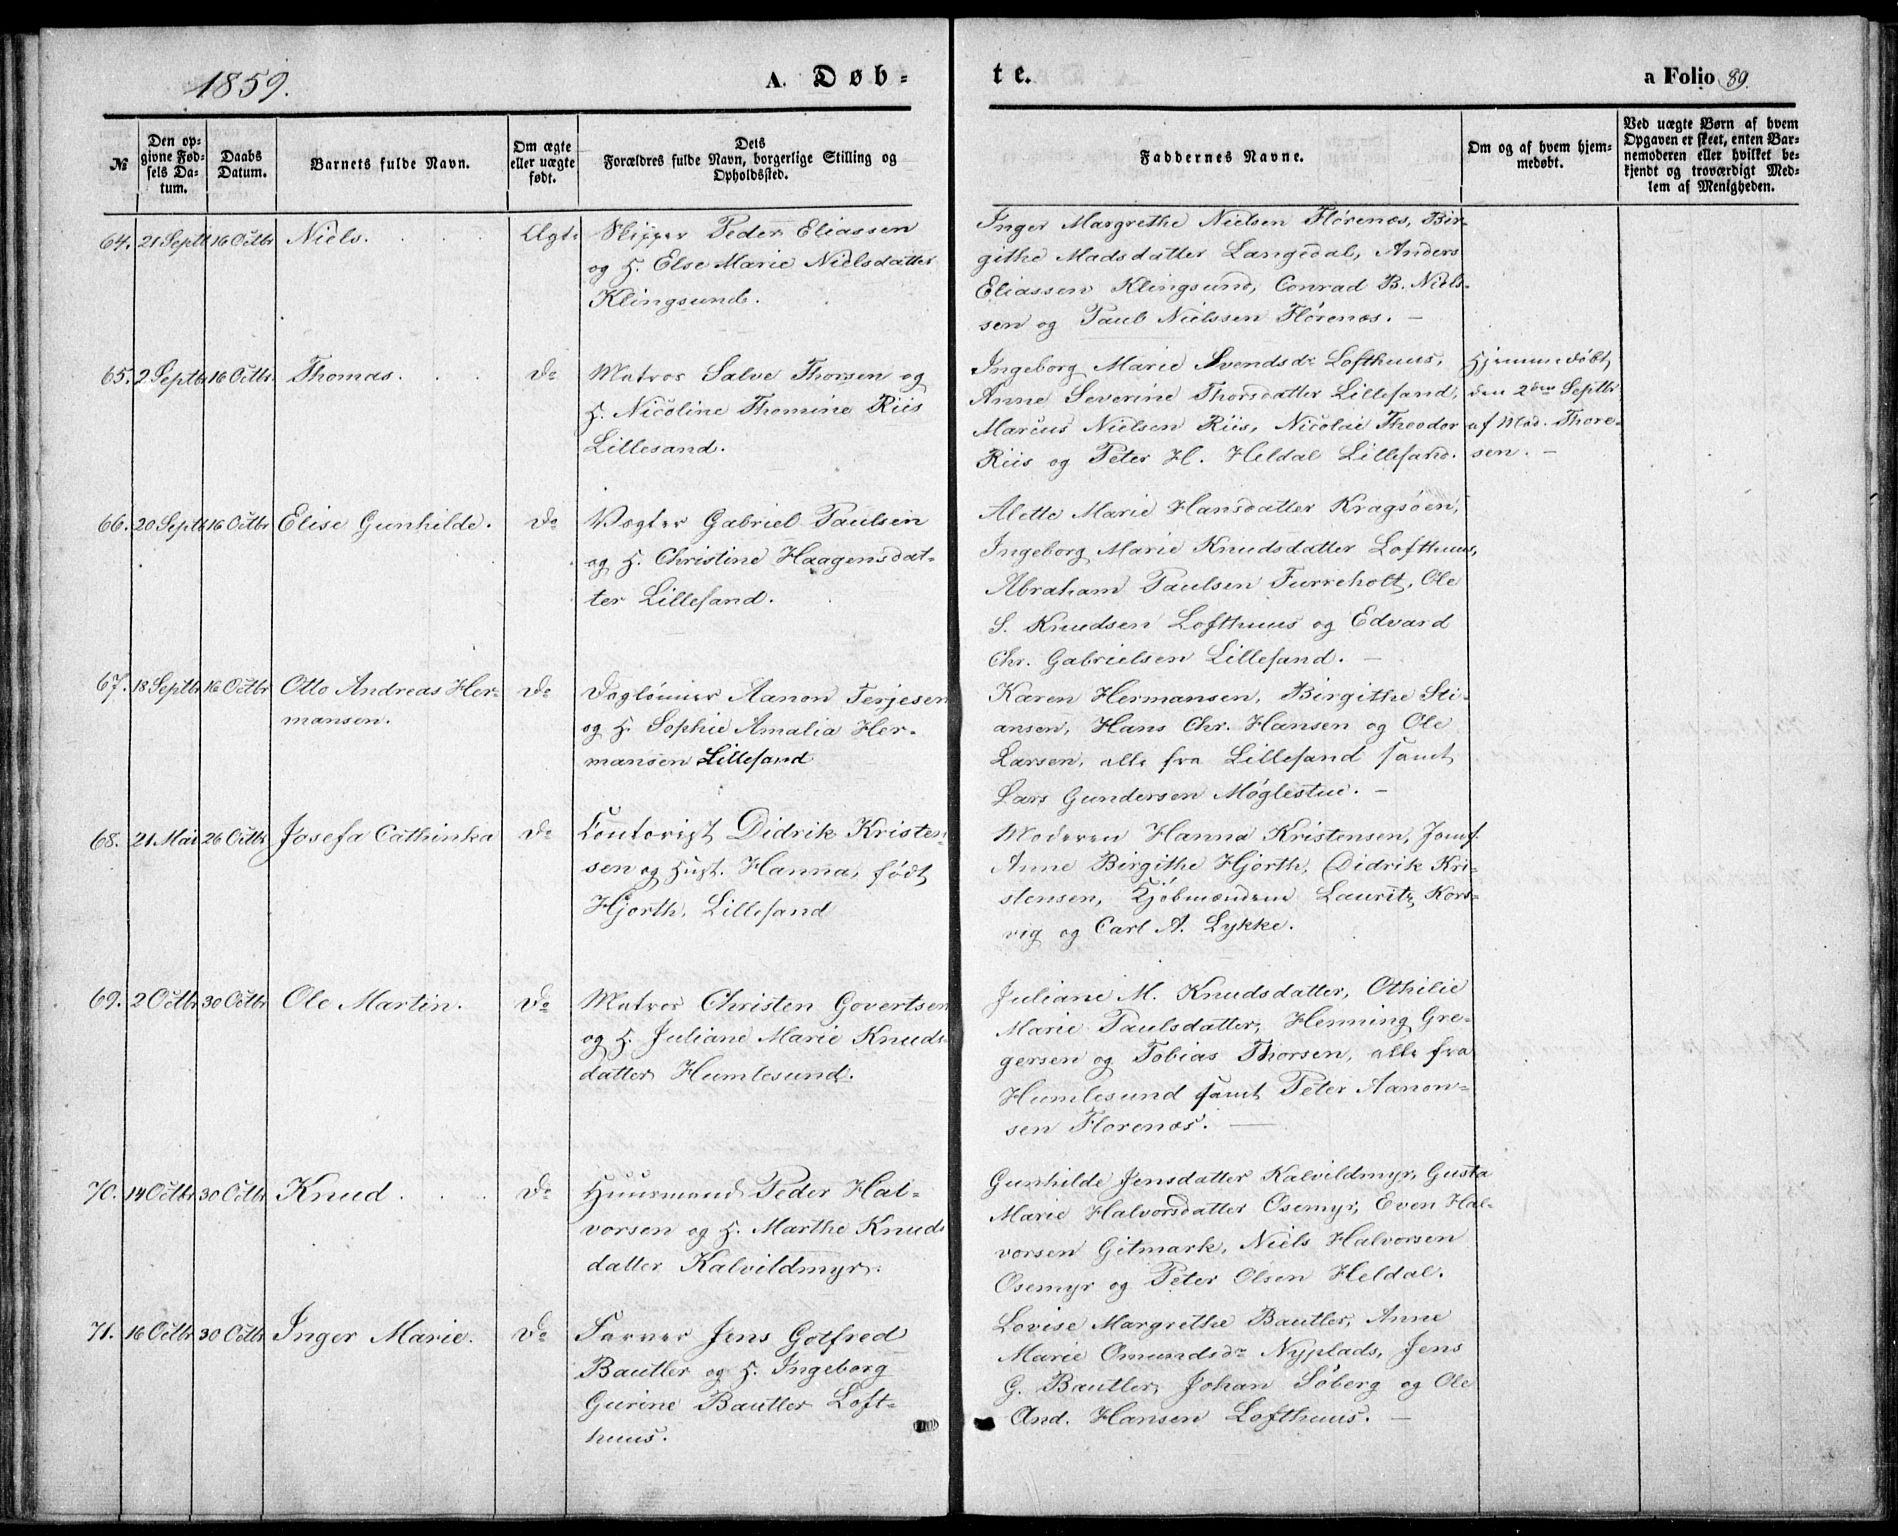 1859.
A. Døb-
te.
a Folio 89.
№
Den op-
givne Fød-
sels Da-
tum.
Daabs
Datum.
Barnets fulde Navn.
Om ægte
eller uægte
født.
Dets
Forældres fulde Navn, borgerlige Stilling og
Opholdssted.
Faddernes Navne.
Om og af hvem hjem-
medøbt.
Ved uægte Børn af hvem
Opgaven er skeet, enten Bar-
nemoderen eller hvilket be-
kjendt og troværdigt Med-
lem af Menigheden.
64. 21 Septbr 16 Octbr Niels. Ægte
Skipper Peder Eliassen
og H. Else Marie Nielsdatter
Klingsund.
Inger Margrethe Nielsen Flörenæs, Bir-
githe Madsdatter Langedal, Anders
Eliassen Klingsund, Conrad B. Niels-
sen og Paul Nielssen Flörenæs. –
65. 2 Septbr 16 Octbr. Thomas. Do
Matros Salve Thorsen og
H. Nicoline Thomine Riis
Lillesand.
Ingeborg Marie Svendsdr Lofthuus,
Anne Severine Thorsdatter Lillesand,
Marcus Nielsen Riis, Nicolai Theodor
Riis og Peter H. Heldal Lillesand.
Hjemmedöbt
den 2den Septbr
af Mad. Thore-
sen. –
66. 20 Septbr 16 Octbr Elise Gunhilde. Do
Vægter Gabriel Paulsen
og H. Christine Haagensdat-
ter Lillesand.
Alette Marie Hansdatter Kragsöen,
Ingeborg Marie Knudsdatter Lofthuus,
Abraham Paulsen Furreholt, Ole
S. Knudsen Lofthuus og Edvard
Chr. Gabrielsen Lillesand. –
67. 18 Septbr 16 Octbr Otto Andreas Her-
mansen. Do
Daglönner Aanon Terjesen
og H. Sophie Amalia Her-
mansen Lillesand
Karen Hermansen, Birgithe Sti-
ansen, Hans Chr. Hansen og Ole
Larsen, alle fra Lillesand samt
Lars Gundersen Möglestue. –
68. 21. Mai 26 Octbr Josefa Cathinka Do
Contorist Didrik Kristen-
sen og Hust. Hanna, født
Hjorth, Lillesand
Moderen Hanna Kristensen, Jomf.
Anne Birgithe Hjorth, Didrik Kri-
stensen, Kjöbmændene Lauritz Kors-
vig og Carl A. Lykke.
69. 2 Octbr 30 Octbr Ole Martin. Do
Matros Christen Govertsen
og H. Juliane Marie Knuds-
datter Humlesund.
Juliane M. Knudsdatter, Othilie
Marie Paulsdatter, Henning Gre-
gersen og Tobias Thorsen, alle fra
Humlesund samt Peter Aanon-
sen Florenæs. –
70. 14 Octbr 30 Octbr Knud. Do
Huusmand Peder Hal-
vorsen og H. Marthe Knuds
datter Kalvildmyr.
Gunhilde Jensdatter Kalvildmyr, Gusta
Marie Halvorsdatter Osemyr, Even Hal-
vorsen Gitmark, Niels Halvorsen
Osemyr og Peter Olsen Heldal.
71. 16 Octbr 30 Octbr Inger Marie. Do
Farver Jens Gotfred
Bautler og H. Ingeborg
Gurine Bautler Loft-
huus.
Lovise Margrethe Bautler, Anne
Marie Omundsdr Nyplads, Jens
G. Bautler, Johan Söberg og Ole
And. Hansen Lofthuus. –